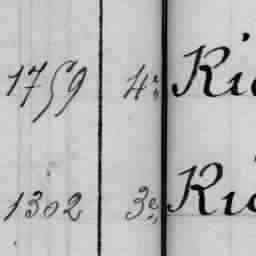 1759 4: Ric
1302 3e, Ric